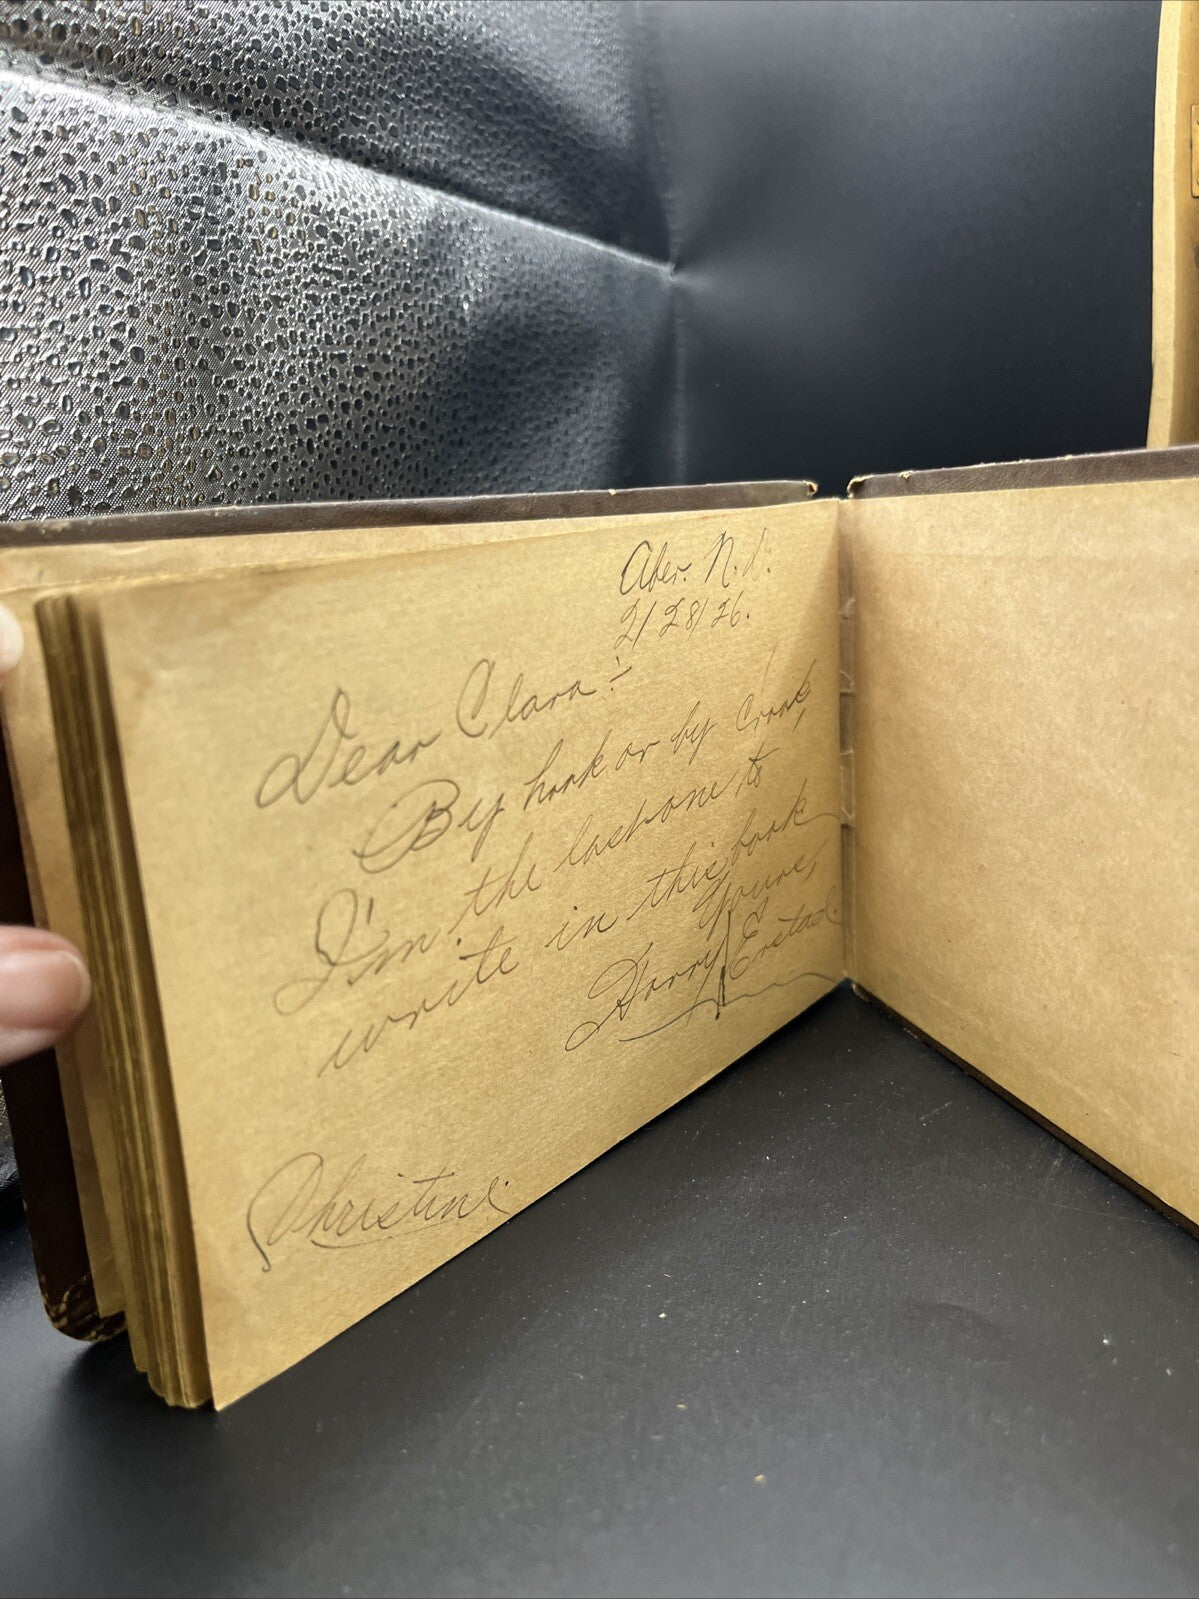 Aber. N.D.
2/28/26.
Dear Clara:-
By hook or by Crook,
I'm the last one to
write in this book
Yours,
Harry Erstad.
Christine.